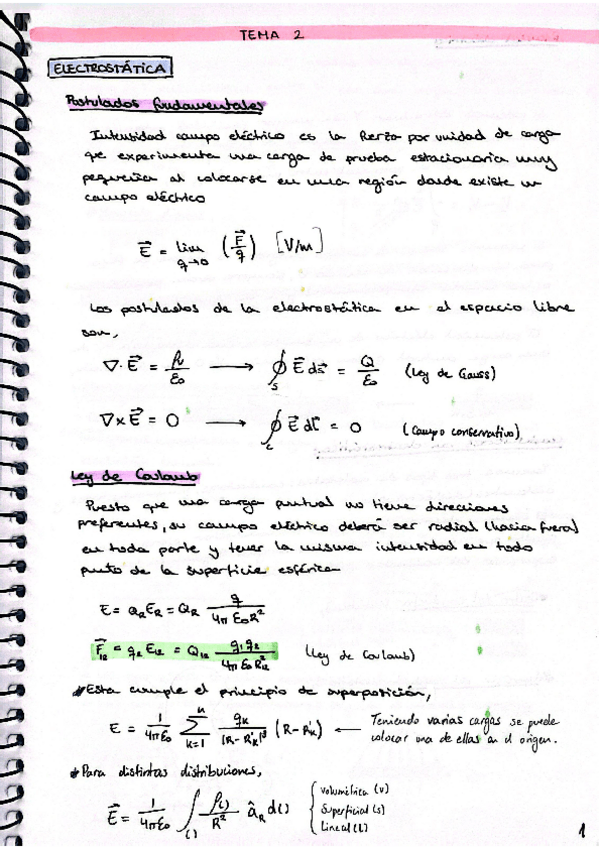 TEMA 2
ELECTROSTÁTICA
Postulados fundamentales
Intensidad campo eléctrico es la fuerza por unidad de carga
que experimenta una carga de prueba estacionaria muy
pequeña al colocarse en una región donde existe un
campo eléctrico
E⃗ = lim q→0 (F⃗/q) [V/m]
Los postulados de la electrostática en el espacio libre
son,
∇·E⃗ = ρv/ε0 → ∮s E⃗ ds⃗ = Q/ε0 (Ley de Gauss)
∇×E⃗ = 0 → ∮c E⃗ dl⃗ = 0 (Campo conservativo)
Ley de Coulomb
Puesto que una carga puntual no tiene direcciones
preferentes, su campo eléctrico deberá ser radial (hacia fuera)
en toda parte y tener la misma intensidad en todo
punto de la superficie esférica
E = aR ER = aR q/(4π ε0 R²)
F⃗12 = q2 E12 = a12 q1 q2/(4π ε0 R12²) (Ley de Coulomb)
* Esta cumple el principio de superposición,
E = 1/(4πε0) Σ k=1 n qk/|R-R'k|³ (R-R'k) ← Teniendo varias cargas se puede
colocar una de ellas en el origen.
* Para distintas distribuciones,
E⃗ = 1/(4πε0) ∫() ρ()/R² âR d() { volumétrica (v)
Superficial (s)
Lineal (l)
1